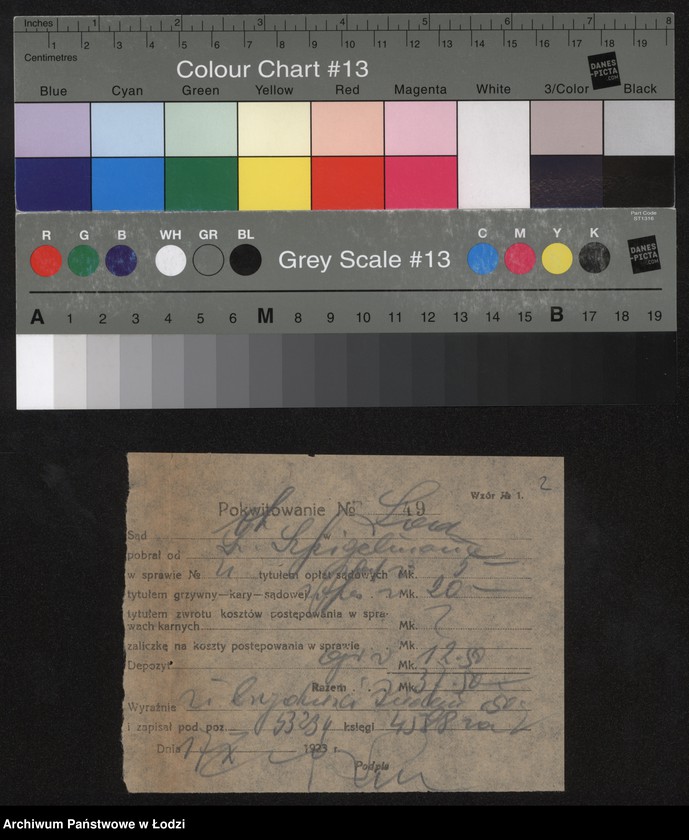 Inches 1 2 3 4 5 6 7 8
1 2 3 4 5 6 7 8 9 10 11 12 13 14 15 16 17 18 19
Centimetres
Colour Chart #13
DANES
-PICTA
.COM
Blue Cyan Green Yellow Red Magenta White 3/Color Black
Part Code
ST1316
R G B WH GR BL Grey Scale #13 C M Y K
DANES
-PICTA
.COM
A 1 2 3 4 5 6 M 8 9 10 11 12 13 14 15 B 17 18 19
2
Wzór № 1.
Pokwitowanie № 49
Sąd
pobrał od Szpigelmana
w sprawie № tytułem opłat sądowych Mk. 5
tytułem grzywny—kary—sądowej Mk. 20 —
tytułem zwrotu kosztów postępowania w spra-
wach karnych Mk.
zaliczkę na koszty postępowania w sprawie
Depozyt Mk. 12.50
Razem Mk. 37.50
Wyraźnie
i zapisał pod poz. 53234 księgi
Dnia 1923 r.
Podpis
Archiwum Państwowe w Łodzi